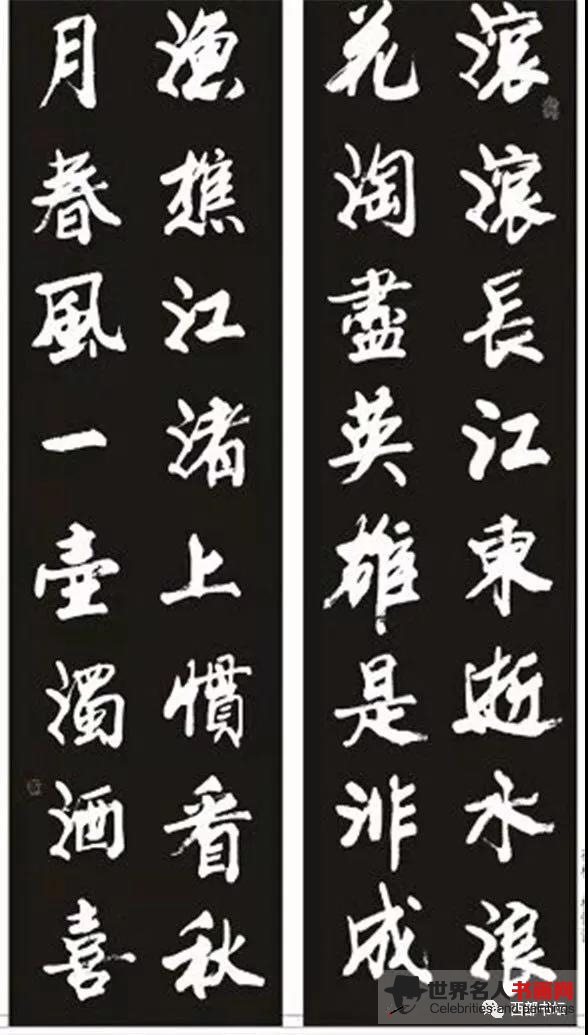 滾滾長江東逝水浪
花淘盡英雄是非成
漁樵江渚上慣看秋
月春風一壺濁酒喜
世界名人书画网
Celebrities and paintings
西部书坛